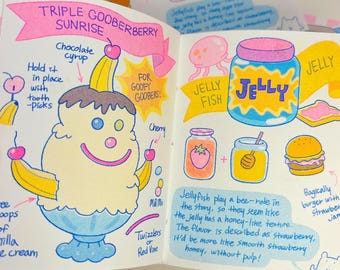 TRIPLE GOOBERBERRY
SUNRISE
Chocolate
syrup
Hold it
in place
with
tooth
-picks
FOR
GOOFY
GOOBERS!
Cherry
M&Ms
scoops
of
cream
Twizzlers
or Red Vine
JELLY
FISH
JELLY
JELLY
+
Basically
burger
with
strawberry
jam
Jellyfish play a bee-role in
the story, so they seem like
the jelly has a honey-like texture.
The flavor is described as strawberry,
it'd be more like smooth strawberry
honey, without pulp!